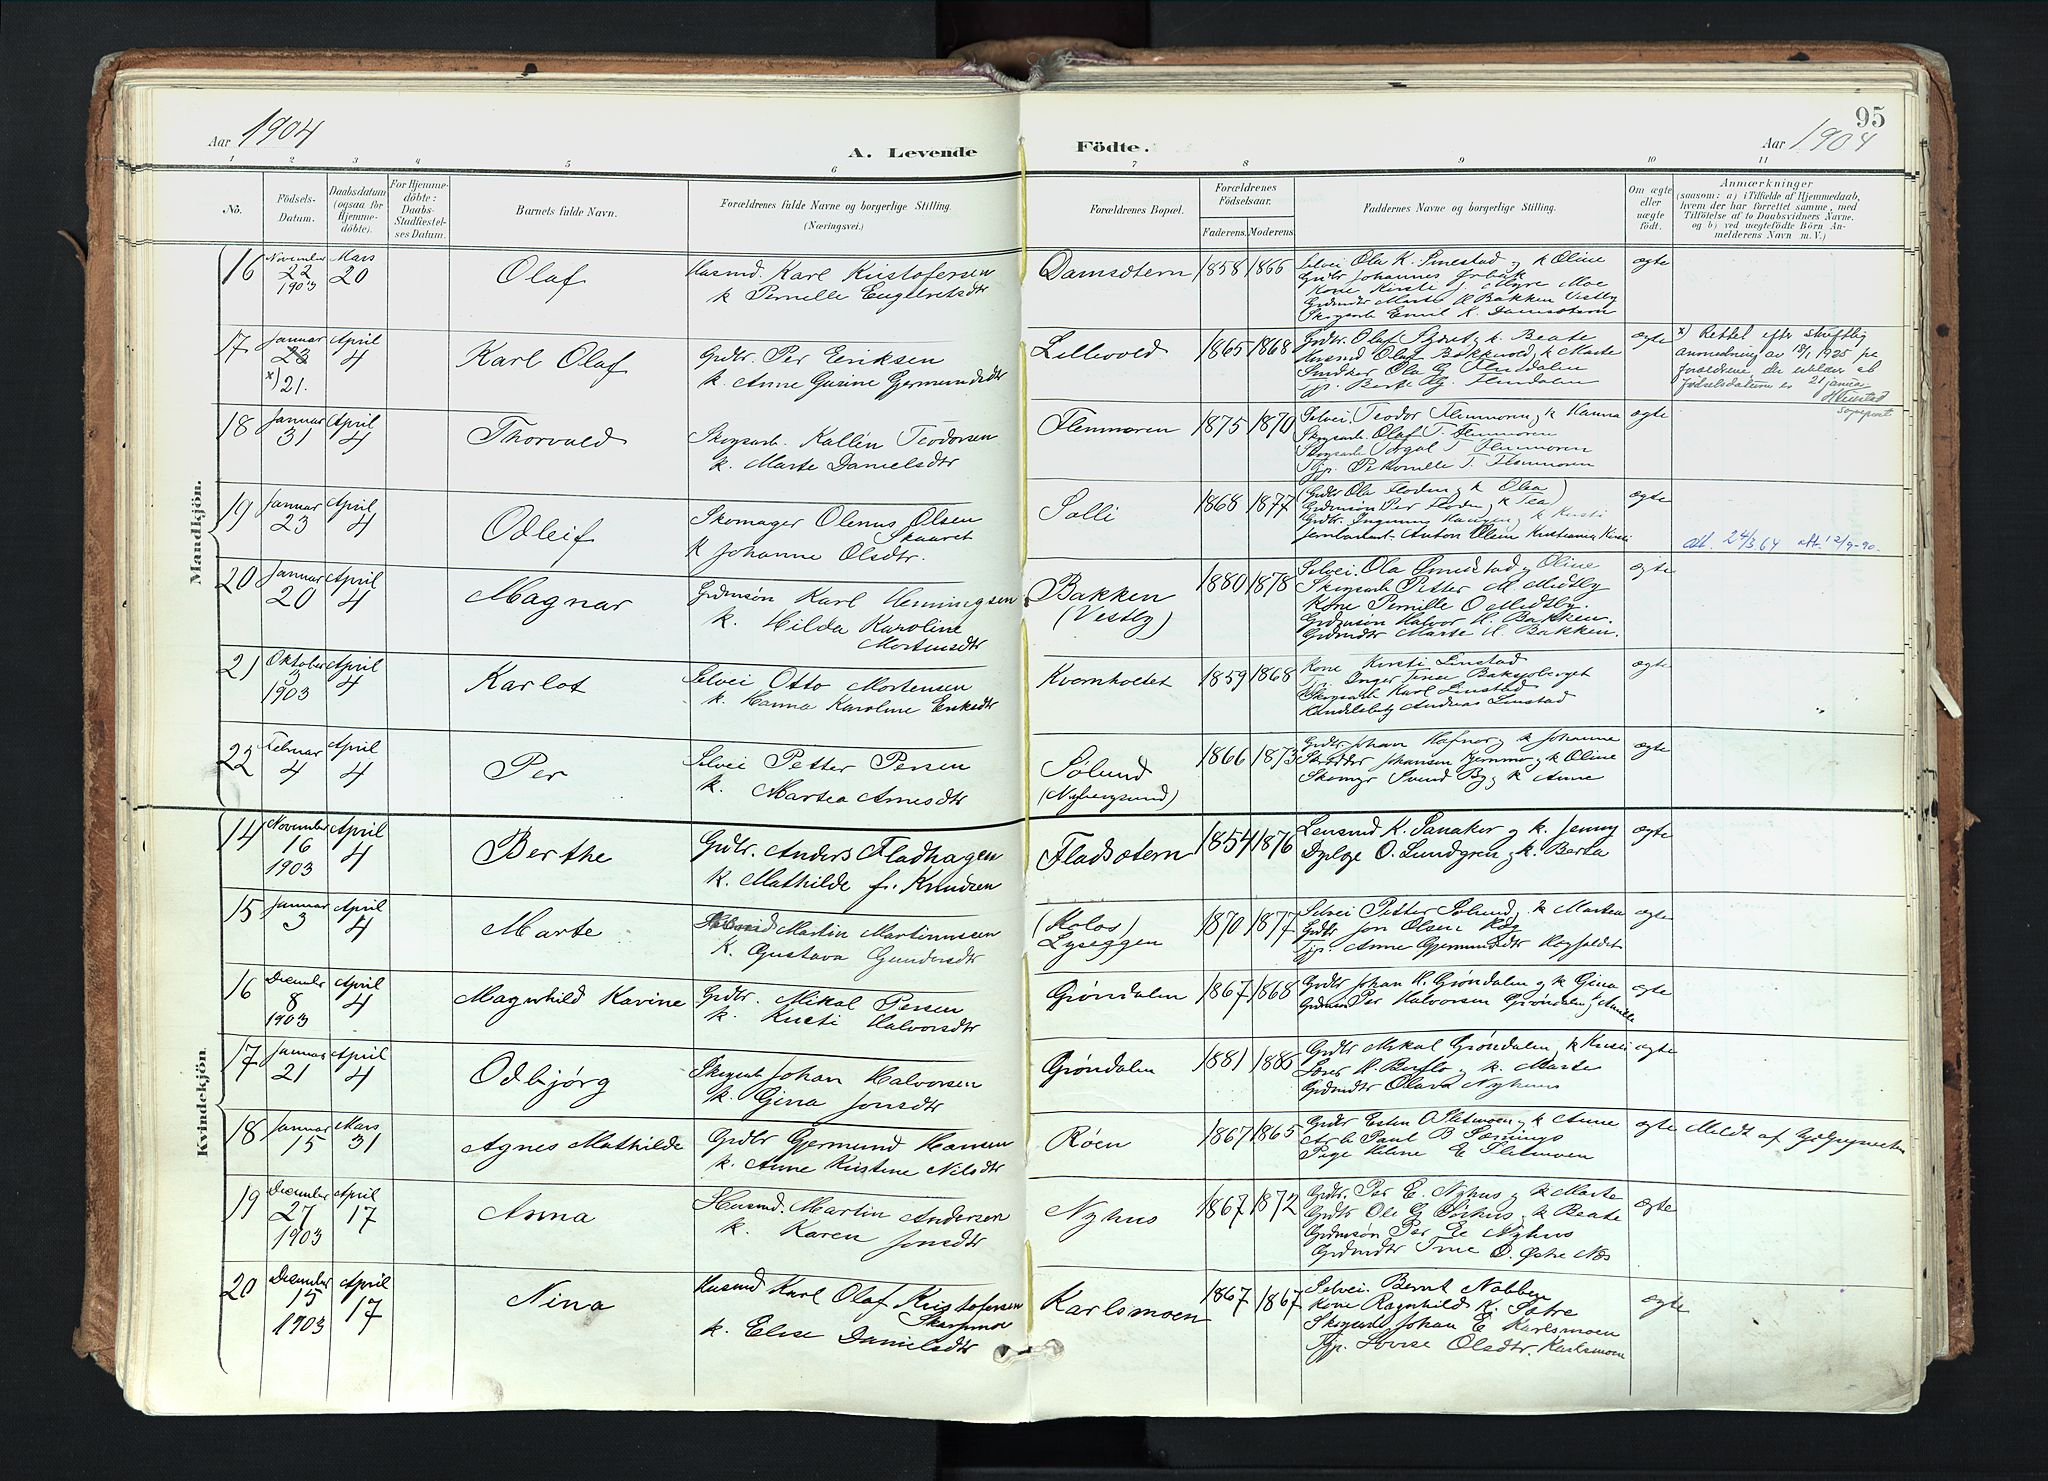 95
Aar 1904
A. Levende Födte.
Aar 1904
1 2 3 4 5 6 7 8 9 10 11
No.
Födsels-Datum.
Daabsdatum (ogsaa for Hjemme-döbte).
For Hjemme-döbte: Daabs-Stadfæstel-ses Datum.
Barnets fulde Navn.
Forældrenes fulde Navne og borgerlige Stilling. (Næringsvei.)
Forældrenes Bopæl.
Forældrenes Födselsaar.
Faderens. Moderens.
Faddernes Navne og borgerlige Stilling.
Om ægte eller uægte födt.
Anmærkninger
(saasom: a) i Tilfælde af Hjemmedaab, hvem der har forrettet samme, med Tilföielse af to Daabsvidners Navne. og b) ved uægtefödte Börn An-melderens Navn m. V.)
Mandkjön.
16 November 22 1903 Mars 20 Olaf Husmd. Karl Kristofersen
k Pernille Engebretsdtr
Damsætern 1858 1866 Selvei Ola K. Smestad og k Oline
Grdbr Johannes
Kone Kirsti J. Myre Moe
Grdmdtr Marte H Bakken Vestby
Skogsarb Emil K. Damsætern
ægte
17 Januar 23 x) 21. April 4 Karl Olaf Grdbr. Per Eriksen
k. Anne Gurine Gjermundsdtr
Lillevold 1865 1868 Grdbr. Olaf k. Beate
Husmd Olaf Bakkvold, k Marte
Ola G Flendalen
Tjp. Berte G. Flendalen
ægte x) Rettet efter skriftlig
anordning av 19/1 1925 på
foreldrene, der erklærer at
fødselsdatum er 21 januar
sogneprest
18 Januar 31 April 4 Thorvald Skogsarb. Kallén Teodorsen
k. Marte Danielsdtr
Flenmoren 1875 1870 Selvei Teodor Flenmoren og k Hanna
Skogsarb Olaf T. Flenmoren
Skogsarb Torgal T Flenmoren
Tjp. Pernille T. Flenmoren
ægte
19 Januar 23 April 4 Odleif Skomager Olenus Olsen
Skaaret
k Johanne Olsdtr.
Solli 1868 1877 (Grdbr Ola Floden og k Olea)
Grdmsön Per Floden, k Tea
Grdbr. Ingemund k Kirsti
Jernbarbeit. Anton Olsen Kristiania
ægte att. 24/3 64 att. 12/9-90.
20 Januar 20 April 4 Magnar Grdmsön Karl Henningsen
k. Hilda Karoline
Mortensdtr
Bakken
(Vestby)
1880 1878 Selvei. Ola Smestad og Oline
Skogsarb Petter M Midtby
Kone Pernille O Midtby.
Grdmsön Halvor H. Bakken.
Grdmdtr Marte H Bakken.
ægte
21 Oktober 3 1903 April 4 Karlot Selvei Otto Mortensen
k. Hanna Karoline Eriksdtr
Kvernholtet 1859 1868 Kone Kirsti Linstad
Inger Tine Baksjoberget
Skogsarb Karl Linstad
Handelsbetj Andreas Linstad
ægte
22 Februar 4 April 4 Per Selvei Petter Persen
k. Martea Arnesdtr
Sölund
(Nybergsund)
1866 1873 Grdbr. Johan Hafnor og k Johanne
Skrædder Johansen Hjemmo k Oline
Skomgr Svend By og k Anne
ægte
Kvindekjön.
14 November 16 1903 April 4 Berthe Grdbr. Anders Fladhagen
k. Mathilde f. Knudsen
Fladsætern 1854 1876 Lensmd K. Sanaker og k. Jenny
Dyrlge O. Lundgren og k. Berta
ægte
15 Januar 3 April 4 Marte Martin Martinussen
k. Gustava Gundersdtr
(Kolos)
Lyseggen
1870 1877 Selvei Petter Sölund, k Martea
Grdbr Jon Olsen
Tjp. Anne Gjermundsdtr
ægte
16 December 8 1903 April 4 Magnhild Karine Grdbr. Mikal Persen
k. Kirsti Halvorsdtr
Gröndalen 1867 1868 Grdbr Johan H. Gröndalen og k Gina
Grdmsön Per Halvorsen Gröndalen
ægte
17 Januar 21 April 4 Odbjørg Skogsarb Johan Halvorsen
k. Gina Jonsdtr
Gröndalen 1881 1885 Grdbr Mikal Gröndalen, k Kirsti
Lærer H. Berflo og k. Marte
Grdmdtr Olava Nyhuus
ægte
18 Januar 15 Mars 31 Agnes Mathilde Grdbr Gjermund Hansen
k. Anne Kristine Nilsdtr
Røen 1867 1865 Grdbr Esten O Sletmoen, k Anne
Arb Paul B Sæming
Pige Helene E Sletmoen
ægte Meldt af
19 December 27 1903 April 17 Anna Husmd. Martin Andersen
k. Karen Jonsdtr
Nyhus 1867 1872 Grdbr. Per E. Nyhus og k Marte
Grdbr Ole G Sörhus, k Beate
Grdmsön Per E Nyhus
Grdmdtr Tine O. Østre Næs
ægte
20 December 15 1903 April 17 Nina Husmd Karl Olaf Kristofersen
Skarpmoe
k. Elise Danielsdtr
Karlsmoen 1867 1867 Selvei. Bernt Nabben
Kone Ragnhild K. Sætre
Skogsarb Johan E Karlsmoen
Tjp. Lovise Olsdtr. Karlsmoen
ægte